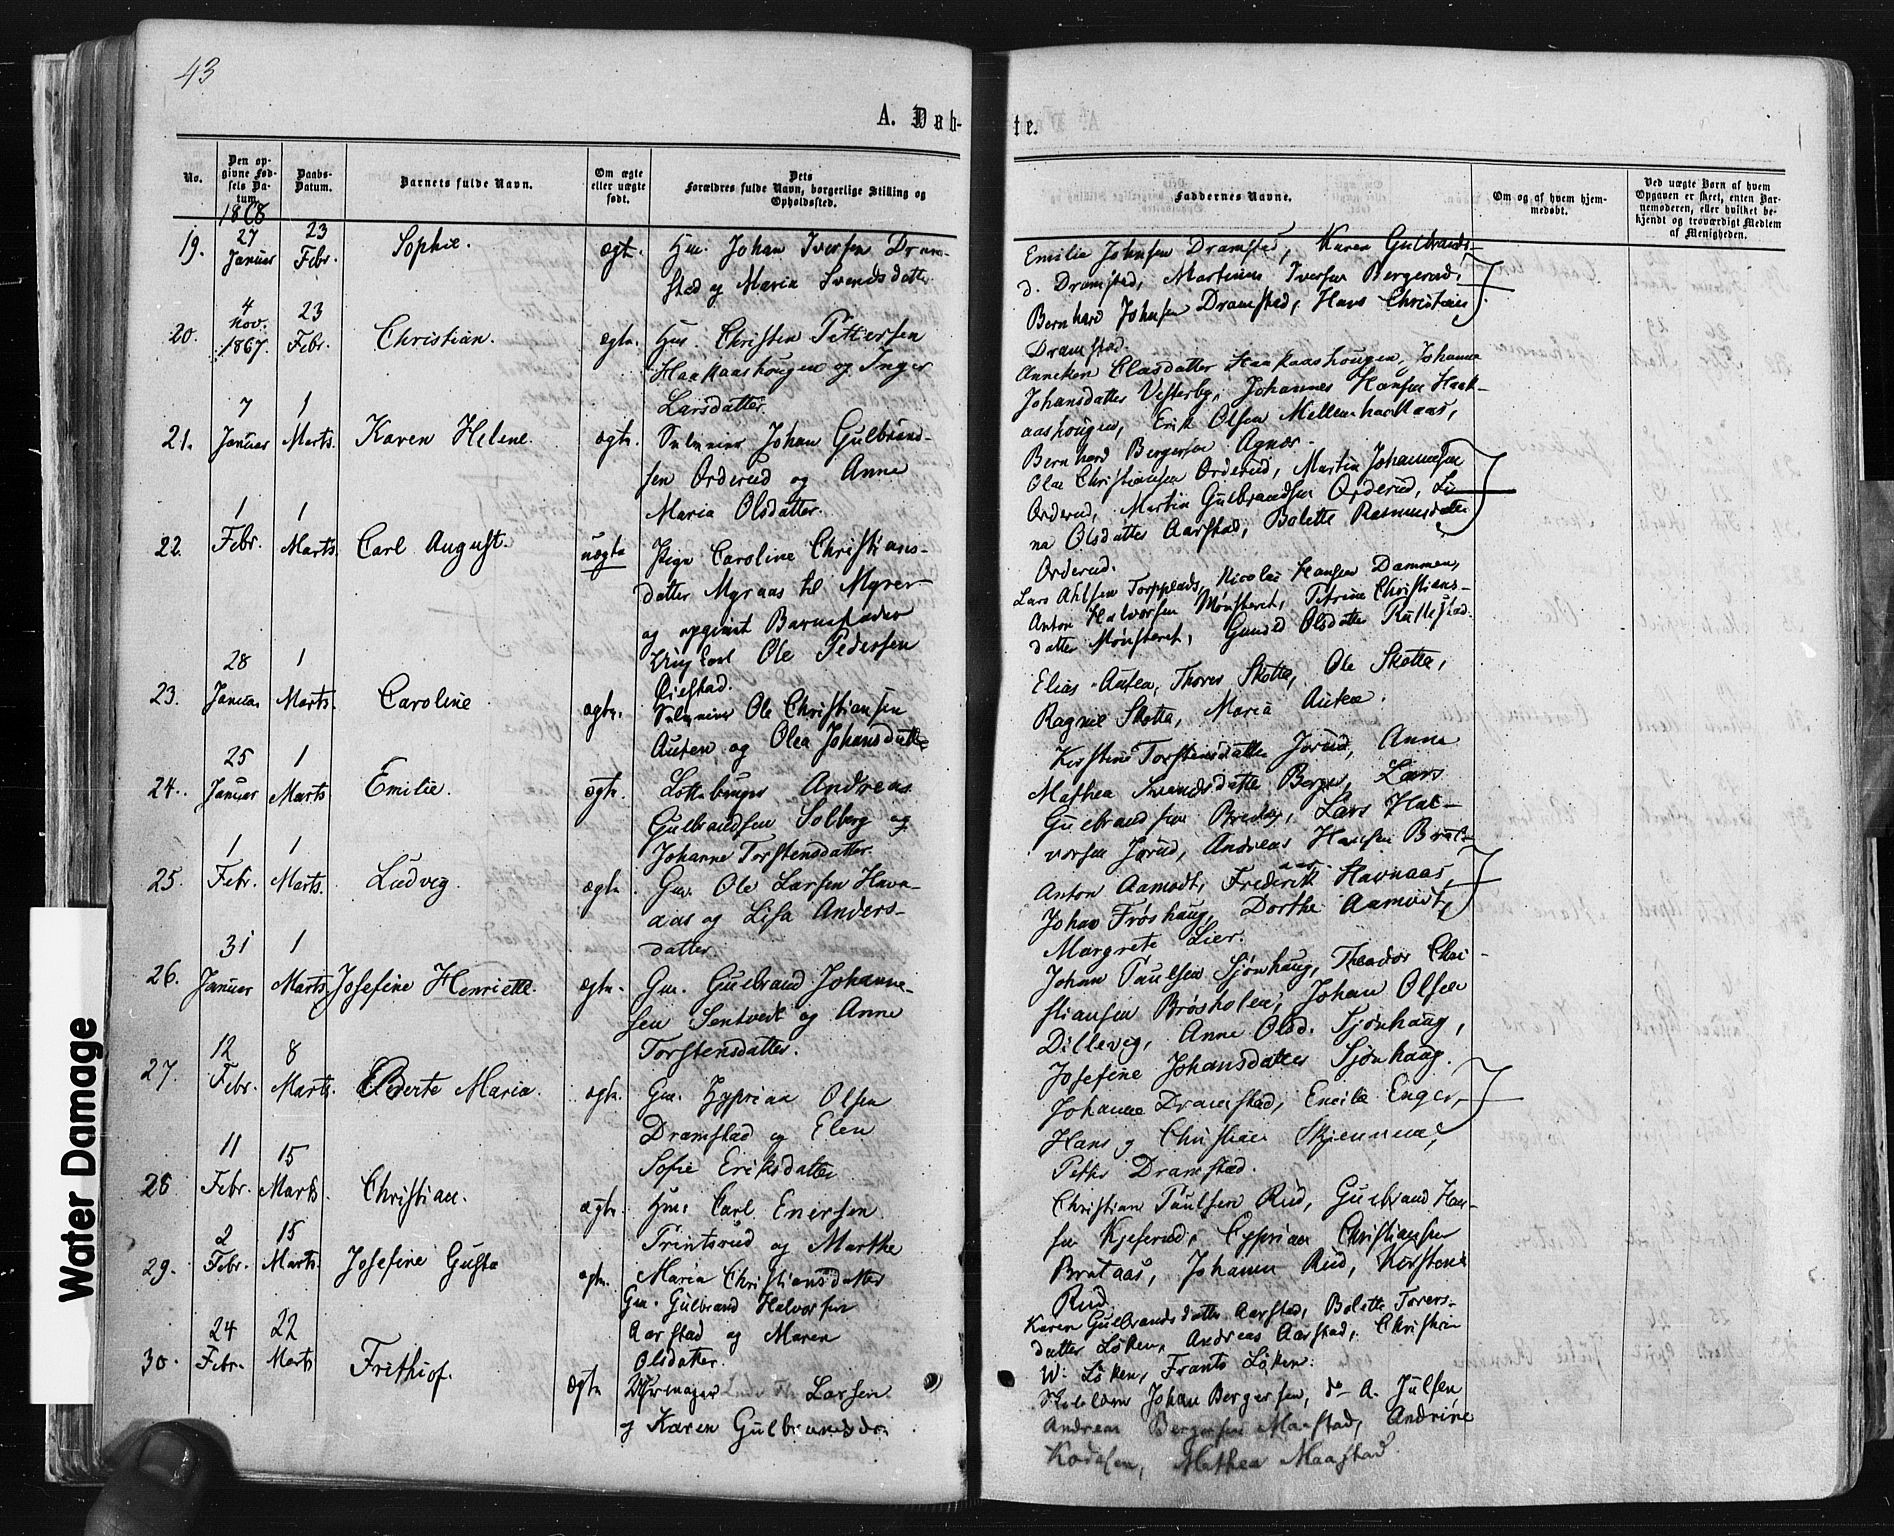 43
A. Daab-
te.
No.
Den op-
givne Fød-
sels Da-
tum.
Daabs-
Datum.
Barnets fulde Navn.
Om ægte
eller uægte
født.
Dets
Forældres fulde Navn, borgerlige Stilling og
Opholdssted.
Faddernes Navne.
Om og af hvem hjem-
medøbt.
Ved uægte Børn af hvem
Opgaven er skeet, enten Bar-
nemoderen, eller hvilket be-
kjendt og troværdigt Medlem
af Menigheden.
1868
19. 27 Januar 23 Febr. Sophie. ægte. Hm. Johan Iversen Dram-
stad og Maria Svendsdatter
Emilie Johnsen Dramstad, Karen Gulbrands-
d. Dramstad, Martinus Iversen Bergerud,
Bernhard Johnsen Dramstad, Hans Christian
Dramstad.
20. 4 Nov. 1867. 23 Febr. Christian. ægte. Hm. Christen Pettersen
Haakaashougen og Inger
Larsdatter.
Anneken Clasdatter Haakaashougen, Johanne
Johansdatter Vesterby, Johannes Hansen Haak-
aashougen, Erik Olsen Mellemhaakaas,
Bernhard Bergersen Agnæs.
21. 7 Januar 1 Marts. Karen Helene. ægte. Johan Gulbrand-
sen Orderud og Anne
Maria Olsdatter.
Olaa Christiansen Orderud, Martin Johannesen
Orderud, Martin Gulbrandsen Orderud, Li-
na Olsdatter Aarstad, Bolette Rasmusdatter
Orderud.
22. 1 Febr. 1 Marts. Carl August. uægte Pige Caroline Christians-
datter Myraas til Myrer
og opgivet Barnefader
Ungkarl Ole Pedersen
Øiestad.
Lars Ahlsen Torpplads, Nicolai Hansen Dammen,
Anton Halvorsen Mønsteret, Petrine Christians-
datter Mønsteret, Gunild Olsdatter Rullestad.
23. 28 Januar 1 Marts. Caroline. ægte. Ole Christiansen
Auten og Olea Johansdatter
Elias Auten, Thorer Skotta, Ole Skotta,
Ragnil Skotta, Maria Auten.
24. 25 Januar 1 Marts Emilie. ægte. Andreas
Gulbrandsen Solberg og
Johanne Torstensdatter.
Kirstine Torstensdatter Jørud, Anne
Mathea Svendsdatter Berger, Lars
Gulbrandsen Brekke, Lars Hal-
vorsen Jørud, Andreas Hansen Brat-
aas.
25. 1 Febr. 1 Marts. Ludvig. ægte Gm. Ole Larsen Havn-
aas og Lisa Anders-
datter.
Anton Aamodt, Frederik Havnaas,
Johan Frøshaug, Dorthe Aamodt,
Margrete Lier.
26. 31 Januar 1 Marts Josefine Henriette. ægte. Gm. Gulbrand Johanne-
sen Sentvedt og Anne
Torstensdatter.
Johan Paulsen Sjønhaug, Theodor Chri-
stiansen Brøsholen, Johan Olsen
Dillevig, Anne Olsd. Sjønhaug,
Josefine Johansdatter Sjønhaug.
27. 12 Febr. 8 Marts. Berte Maria. ægte. Gm. Zyprian Olsen
Dramstad og Elen
Sofie Eriksdatter
Johanne Dramstad, Emilie Enger,
Hans og Christian Skjennum,
Petter Dramstad.
28 11 Febr. 15 Marts. Christian. ægte. Hm: Carl Enersen
Trintsrud og Marthe
Maria Christiansdatter
Christian Paulsen Rud, Gulbrand Han-
sen Kjeserud, Cyprian Christiansen
Brataas, Johanne Rud, Kirstene
Rud.
29. 2 Febr. 15 Marts. Josefine Gusta ægte. Gm. Gulbrand Halvorsen
Aarstad og Maren
Olsdatter.
Karen Gulbrandsdatter Aarstad, Bolette Torers-
datter Løken, Andreas Aarstad, Christian
W. Løken, Frants Løken.
30. 24 Febr. 22 Marts Frithiof. ægte Larsen
og Karen Gulbrandsdr.
Johan Bergersen, do A. Julsen
Andreas Bergersen Maastad, Andrine
Kodalen, Mathea Maastad
Water Damage